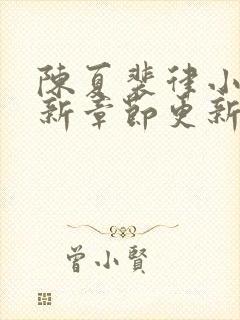 陳夏裴律小
新章節更新
曾小賢